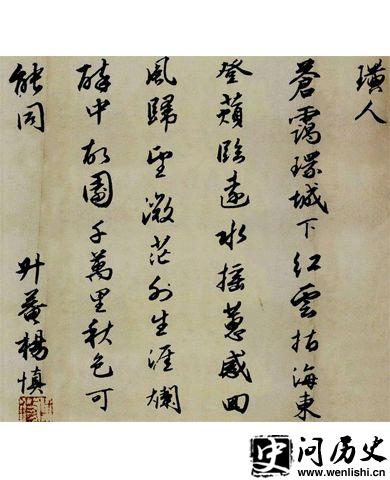 璜人
蒼靄環城下紅雲指海東
登蘋臨遠水摇蕙感回
風歸望微茫外生涯爛
醉中故園千萬里秋色可
能同
升菴楊慎
史 问历史
www.wenlishi.cn